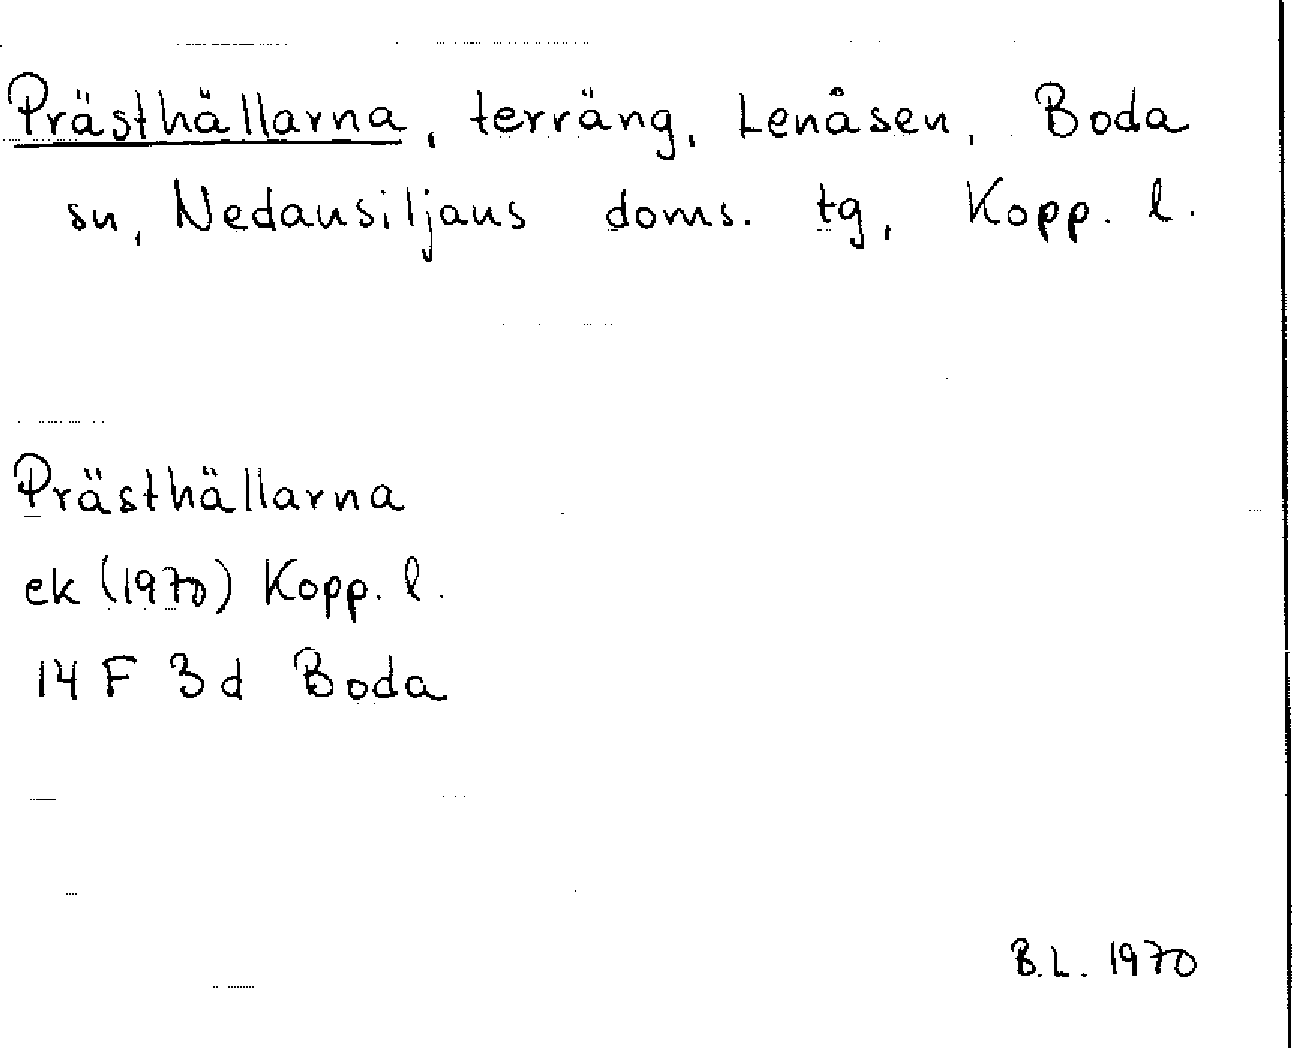 Prästhällarna, terräng, Lenåsen, Boda
sn, Nedansiljans doms. tg, Kopp. l.
Prästhällarna
ek (1970) Kopp. l.
14 F 3d Boda
B.L. 1970